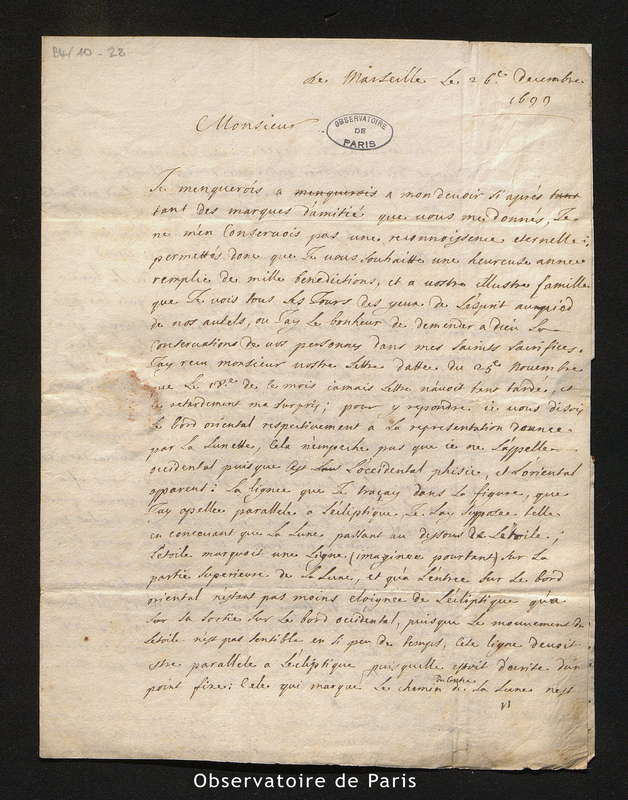 B4/10-22
de Marseille le 26e decembre
1699
Monsieur
OBSERVATOIRE
DE
PARIS
Je menquerois a menquerois a mon devoir si aprés tant
tant des marques d'amitié que vous me donnés, Je
ne m'en conservois pas une reconnoissence eternelle;
permettés donc que Je vous souhaitte une heureuse année
remplie de mille benedictions, et a vostre illustre famille
que Je vois tous les Jours des yeux de l'esprit au pied
de nos autels, ou J'ay le bonheur de demender a dieu la
conservations de vos personnes dans mes saints sacrifices.
J'ay receu monsieur vostre lettre dattée du 25e Novembre
que le de ce mois iamais lettre n'avoit tant tardé, et
retardement ma surpris; pour y repondre ie vous disois
le bord oriental respectivement a la representation donnee
par la lunette, Cela n'empeche pas que ie ne l'appelle
occidental puisque l'occidental phisic, et l'oriental
apparent: la lignee que Je traçay dans la figure, que
J'ay apellee parallele a l'écliptique Je l'ay supposee telle
en concevant que la lune passant au dessous de l'étoile;
l'étoile marquoit une ligne (imaginee pourtant) sur la
partie superieure de la lune, et qu'a l'entree sur le bord
oriental n'estant pas moins eloignee de l'écliptique qu'a
sur sa sortie sur le bord occidental, puisque le mouvement de
l'etoile n'est pas sensible en si peu de temps; Cete ligne devoit
estre parallele a l'écliptique puisquelle estoit décrite d'un
point fixe: Cele qui marque le chemin de la lune n'est
Observatoire de Paris